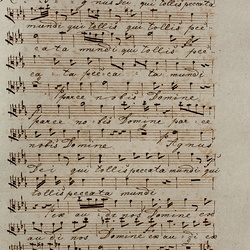 gnus Dei qui tollis peccata
mundi qui tollis pec
cata mundi qui tollis pec
ca ta pecca ta mundi
parce nobis Domine
parce no bis Domine par ce
nobis Domine Agnus
Dei qui tollis peccata mundi qui
tollis peccata mundi
ex au nos Domine ex
nos Domine ex au di ex